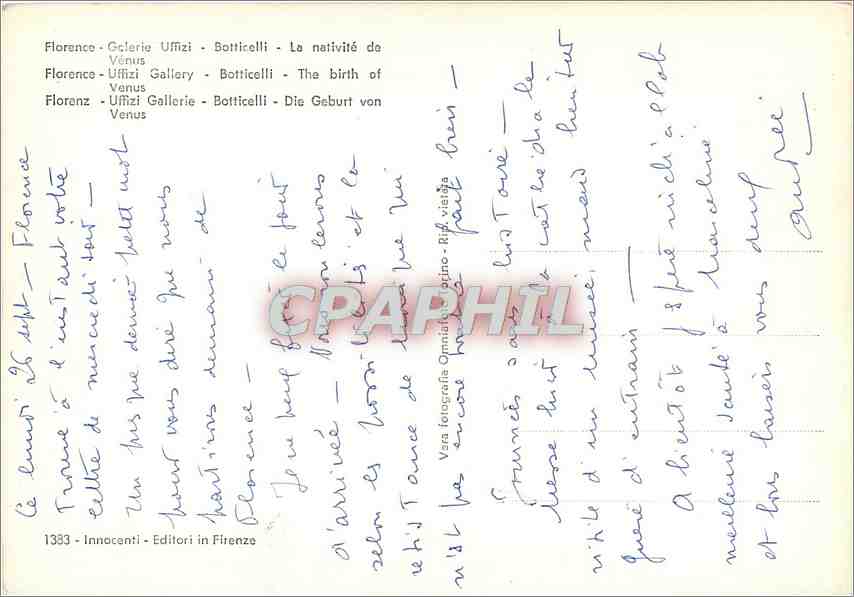 Florence - Galerie Uffizi - Botticelli - La nativité de
Vénus
Florence - Uffizi Gallery - Botticelli - The birth of
Venus
Florenz - Uffizi Gallerie - Botticelli - Die Geburt von
Venus
Ce lundi 26 sept — Florence
Trouvé à l'instant votre
lettre de mercredi soir —
Un presque dernier petit mot
pour vous dire que nous
partirons demain de
Florence —
Je ne peux fixer le jour
d'arrivée — Nous roulerons
selon les possibilités et la
résistance de l'équipe qui
n'est pas encore tout à fait bien —
Journées sans histoire —
Messe hier à la cathédrale
visite d'un musée, mais bientôt
guère d'entrain —
A bientôt j'espère
meilleure santé à Marceline
et bons baisers vous deux
André
Vera fotografia Omniafoto Torino - Rip. vietata
1383 - Innocenti - Editori in Firenze
CPAPHIL